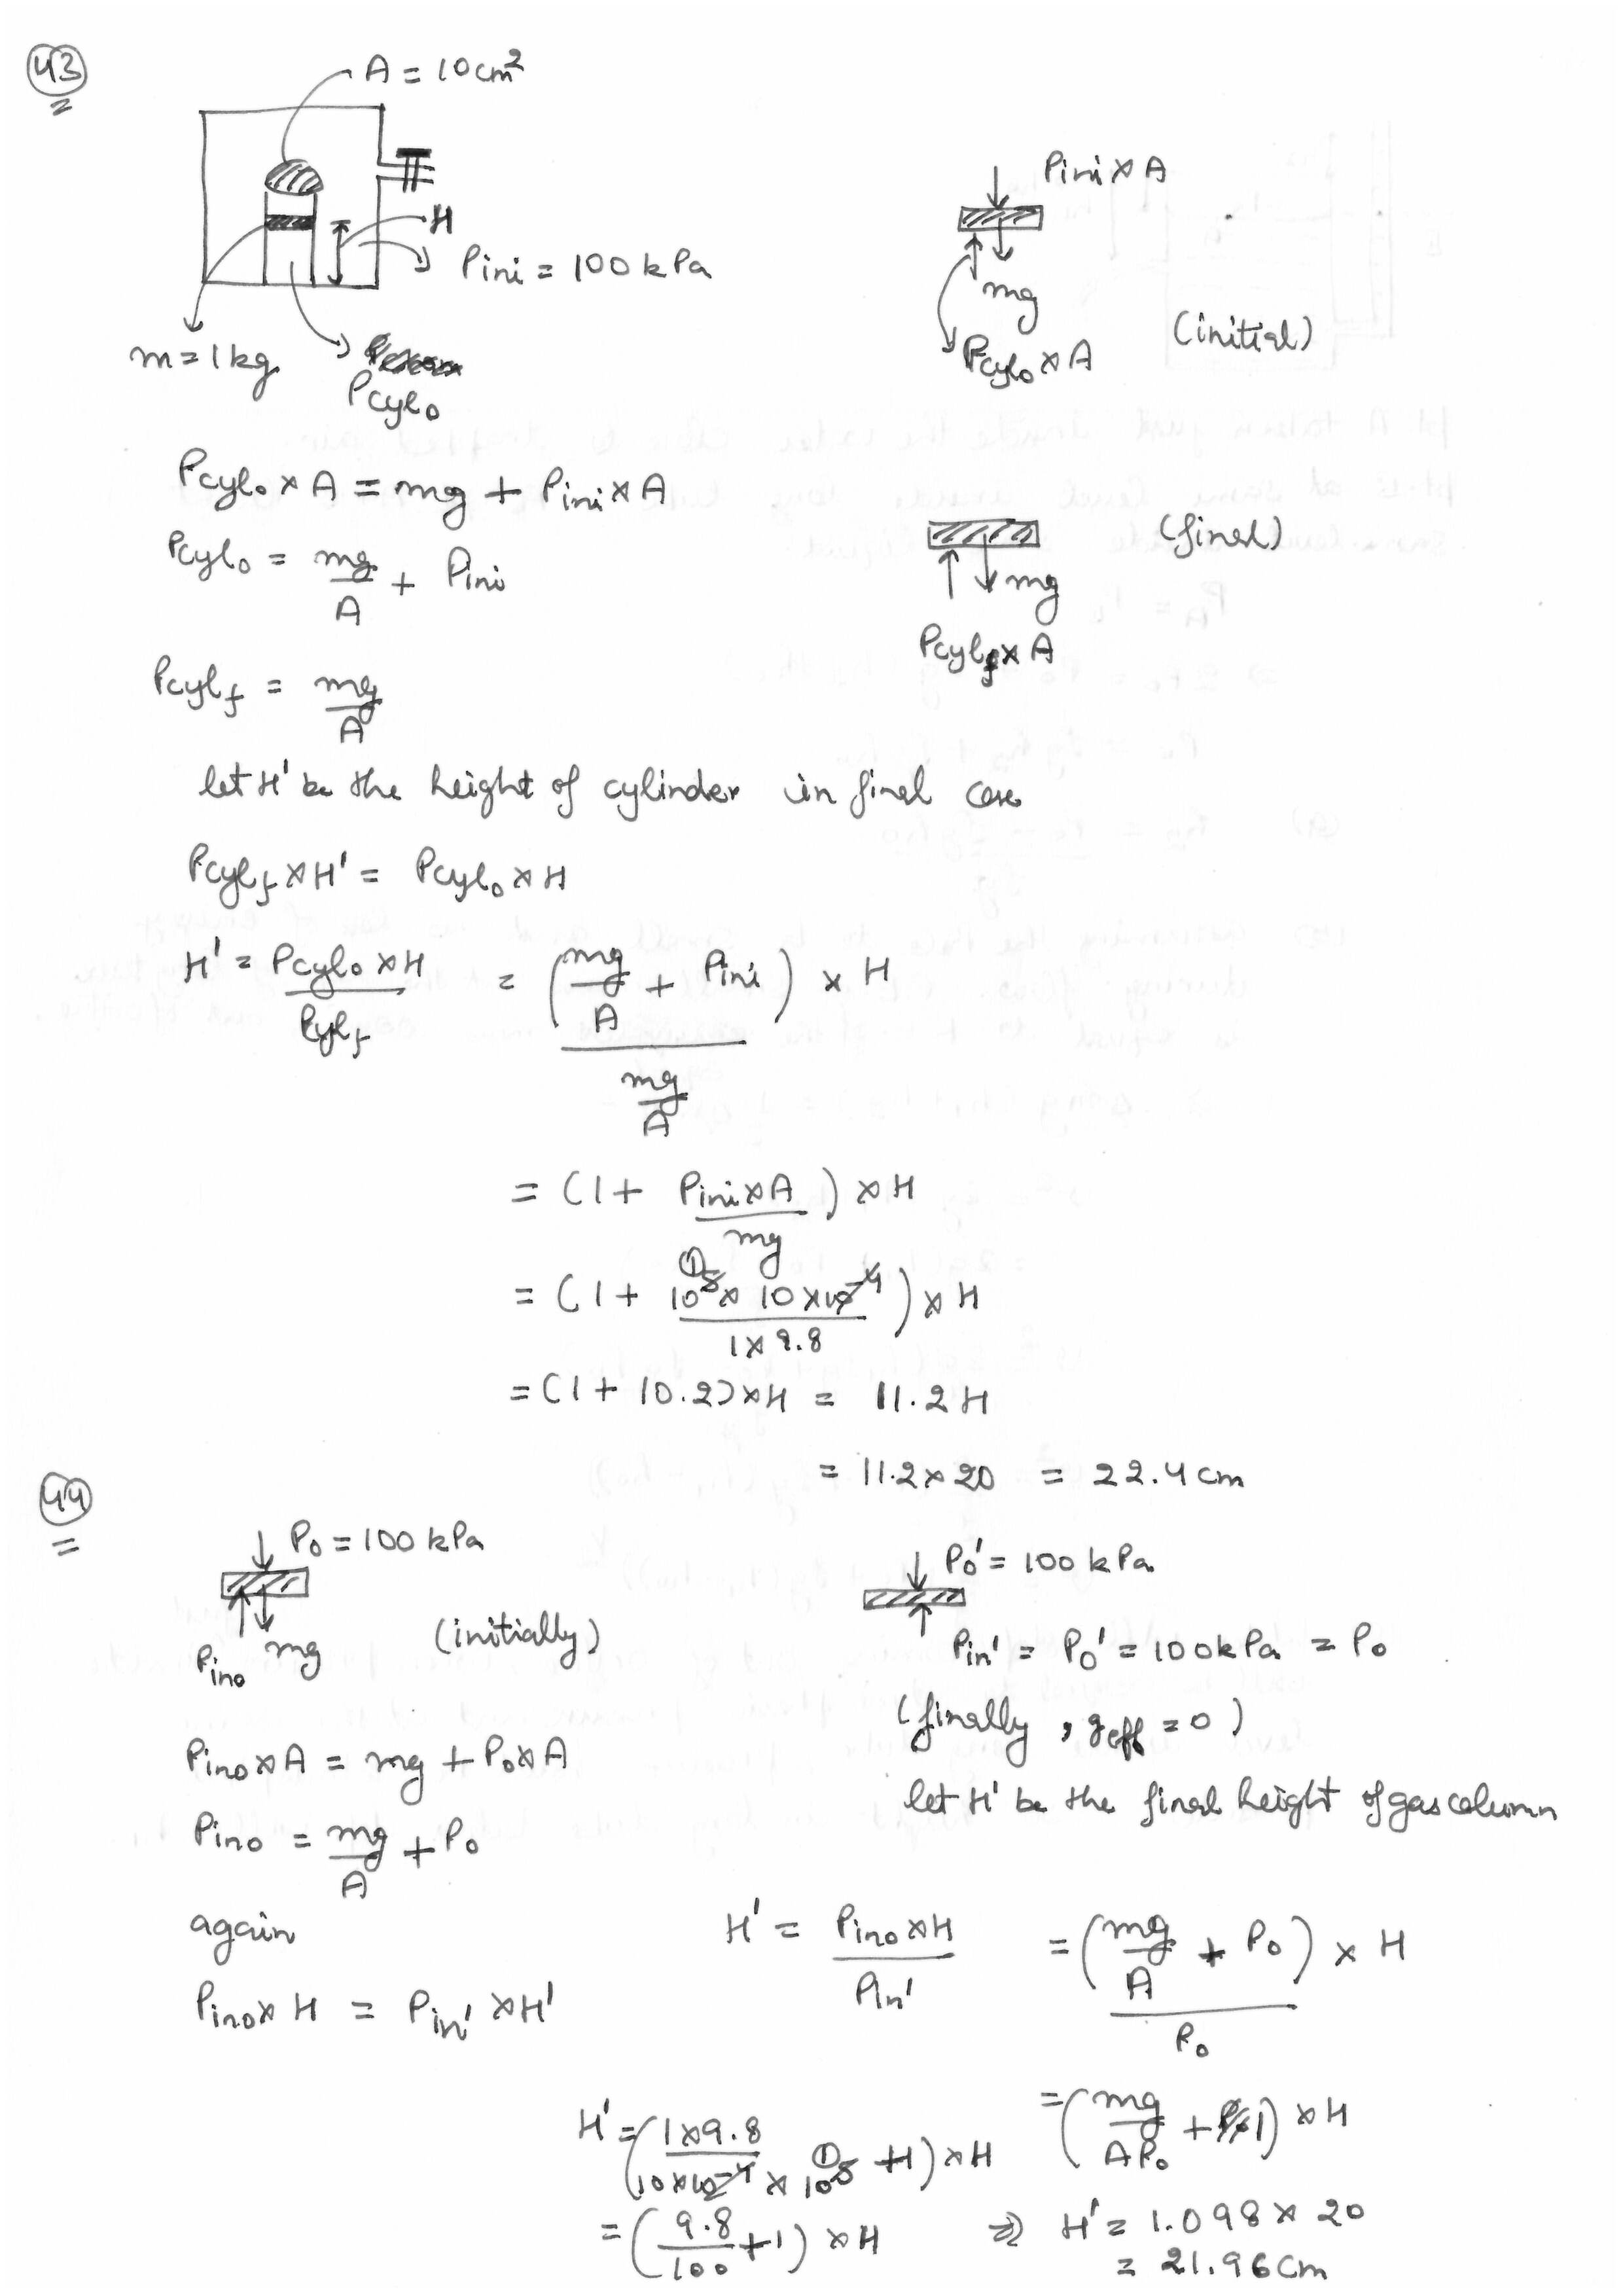 43
A = 10cm²
H
Pini = 100 kPa
m = 1kg
Pcyl₀
Pini × A
mg
Pcyl₀ × A
(initial)
Pcyl₀ × A = mg + Pini × A
Pcyl₀ = mg/A + Pini
(final)
mg
Pcylf × A
Pcylf = mg/A
let H' be the height of cylinder in final case
Pcylf × H' = Pcyl₀ × H
H' = Pcyl₀ × H / Pcylf = (mg/A + Pini) × H / (mg/A)
= (1 + Pini × A / mg) × H
= (1 + 10⁵ × 10 × 10⁻⁴ / 1 × 9.8) × H
①
= (1 + 10.2) × H = 11.2 H
= 11.2 × 20 = 22.4 cm
44
P₀ = 100 kPa
Pin₀ mg
(initially)
P₀' = 100 kPa
Pin' = P₀' = 100 kPa = P₀
(finally, geff = 0)
Pin₀ × A = mg + P₀ × A
let H' be the final height of gas column
Pin₀ = mg/A + P₀
again
Pin₀ × H = Pin' × H'
H' = Pin₀ × H / Pin' = (mg/A + P₀) × H / P₀
= (mg/AP₀ + 1) × H
H' = (1 × 9.8 / 10 × 10⁻⁴ × 10⁵ + 1) × H
①
= (9.8/100 + 1) × H ⇒ H' = 1.098 × 20
= 21.96 cm